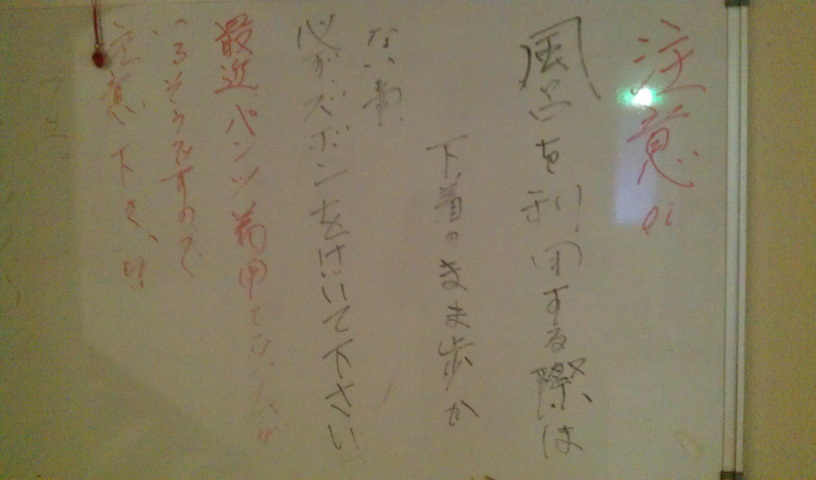 注意!!
風呂を利用する際は
下着のまま歩か
ない事
必ずズボンをはいて下さい
最近パンツ着用でない人が
いるそうですので
注意下さい!!